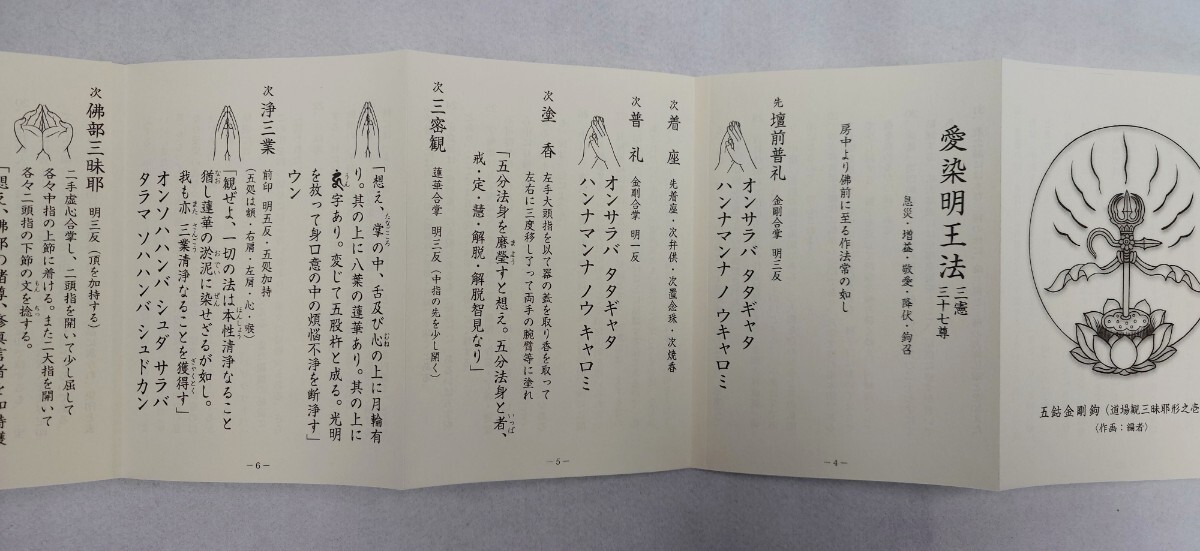 五鈷金剛鉤(道場観三昧耶形之壱
(作画:編者)
愛染明王法 三憲 三十七尊
息災・増益・敬愛・降伏・鉤召
房中より佛前に至る作法常の如し
先 壇前普礼 金剛合掌 明三反
オンサラバ タタギャタ
ハンナマンナ ノ ウキャロミ
-4-
次 着座 先着座・次弁供・次置念珠・次焼香
次 普礼 金剛合掌 明一反
オンサラバ タタギャタ
ハンナマンナ ノウ キャロミ
次 塗香 左手大頭指を以て器の蓋を取り香を取って
左右に三度移し了って両手の腕臂等に塗れ
「五分法身を磨瑩すと想え。五分法身と者、
戒・定・慧・解脱・解脱智見なり」
-5-
次 三密観 蓮華合掌 明三反(中指の先を少し開く)
「想え、掌の中、舌及び心の上に月輪有
り。其の上に八葉の蓮華あり。其の上に
字あり。変じて五股杵と成る。光明
を放って身口意の中の煩悩不浄を断浄す」
ウン
次 浄三業 前印 明五反・五処加持
(五処は額・右肩・左肩・心・喉)
「観ぜよ、一切の法は本性清浄なること
猶し蓮華の淤泥に染せざるが如し。
我も亦 三業清浄なることを獲得す」
オンソハハンバ シュダ サラバ
タラマ ソハハンバ シュドカン
-6-
次 佛部三昧耶 明三反(頂を加持する)
二手虚心合掌し、二頭指を開いて少し屈して
各々中指の上節に着ける。また二大指を開いて
各々二頭指の下節の文を捻する。
「想え、佛部の諸尊、修真言者を加持護